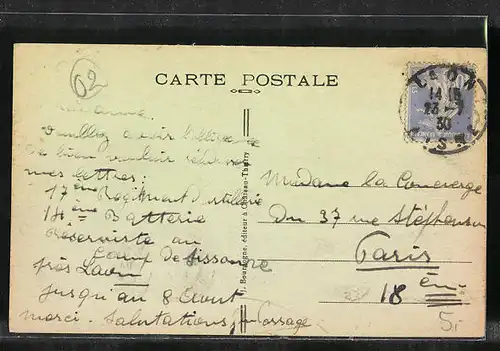 02
CARTE POSTALE
LAON
14 15
23 - 7
30
Madame,
Veuillez avoir l'obligeance
de bien vouloir
mes lettres:
17 ème Régiment d'artillerie
14 ème Batterie
réserviste au
Camp de Sissonne
près Laon
jusqu'au 8 Aout
merci. Salutations
J. Bourgogne, éditeur à Château-Thierry
Madame la Concierge
Du 37 rue Stéphenson
Paris
18 èm
5.-